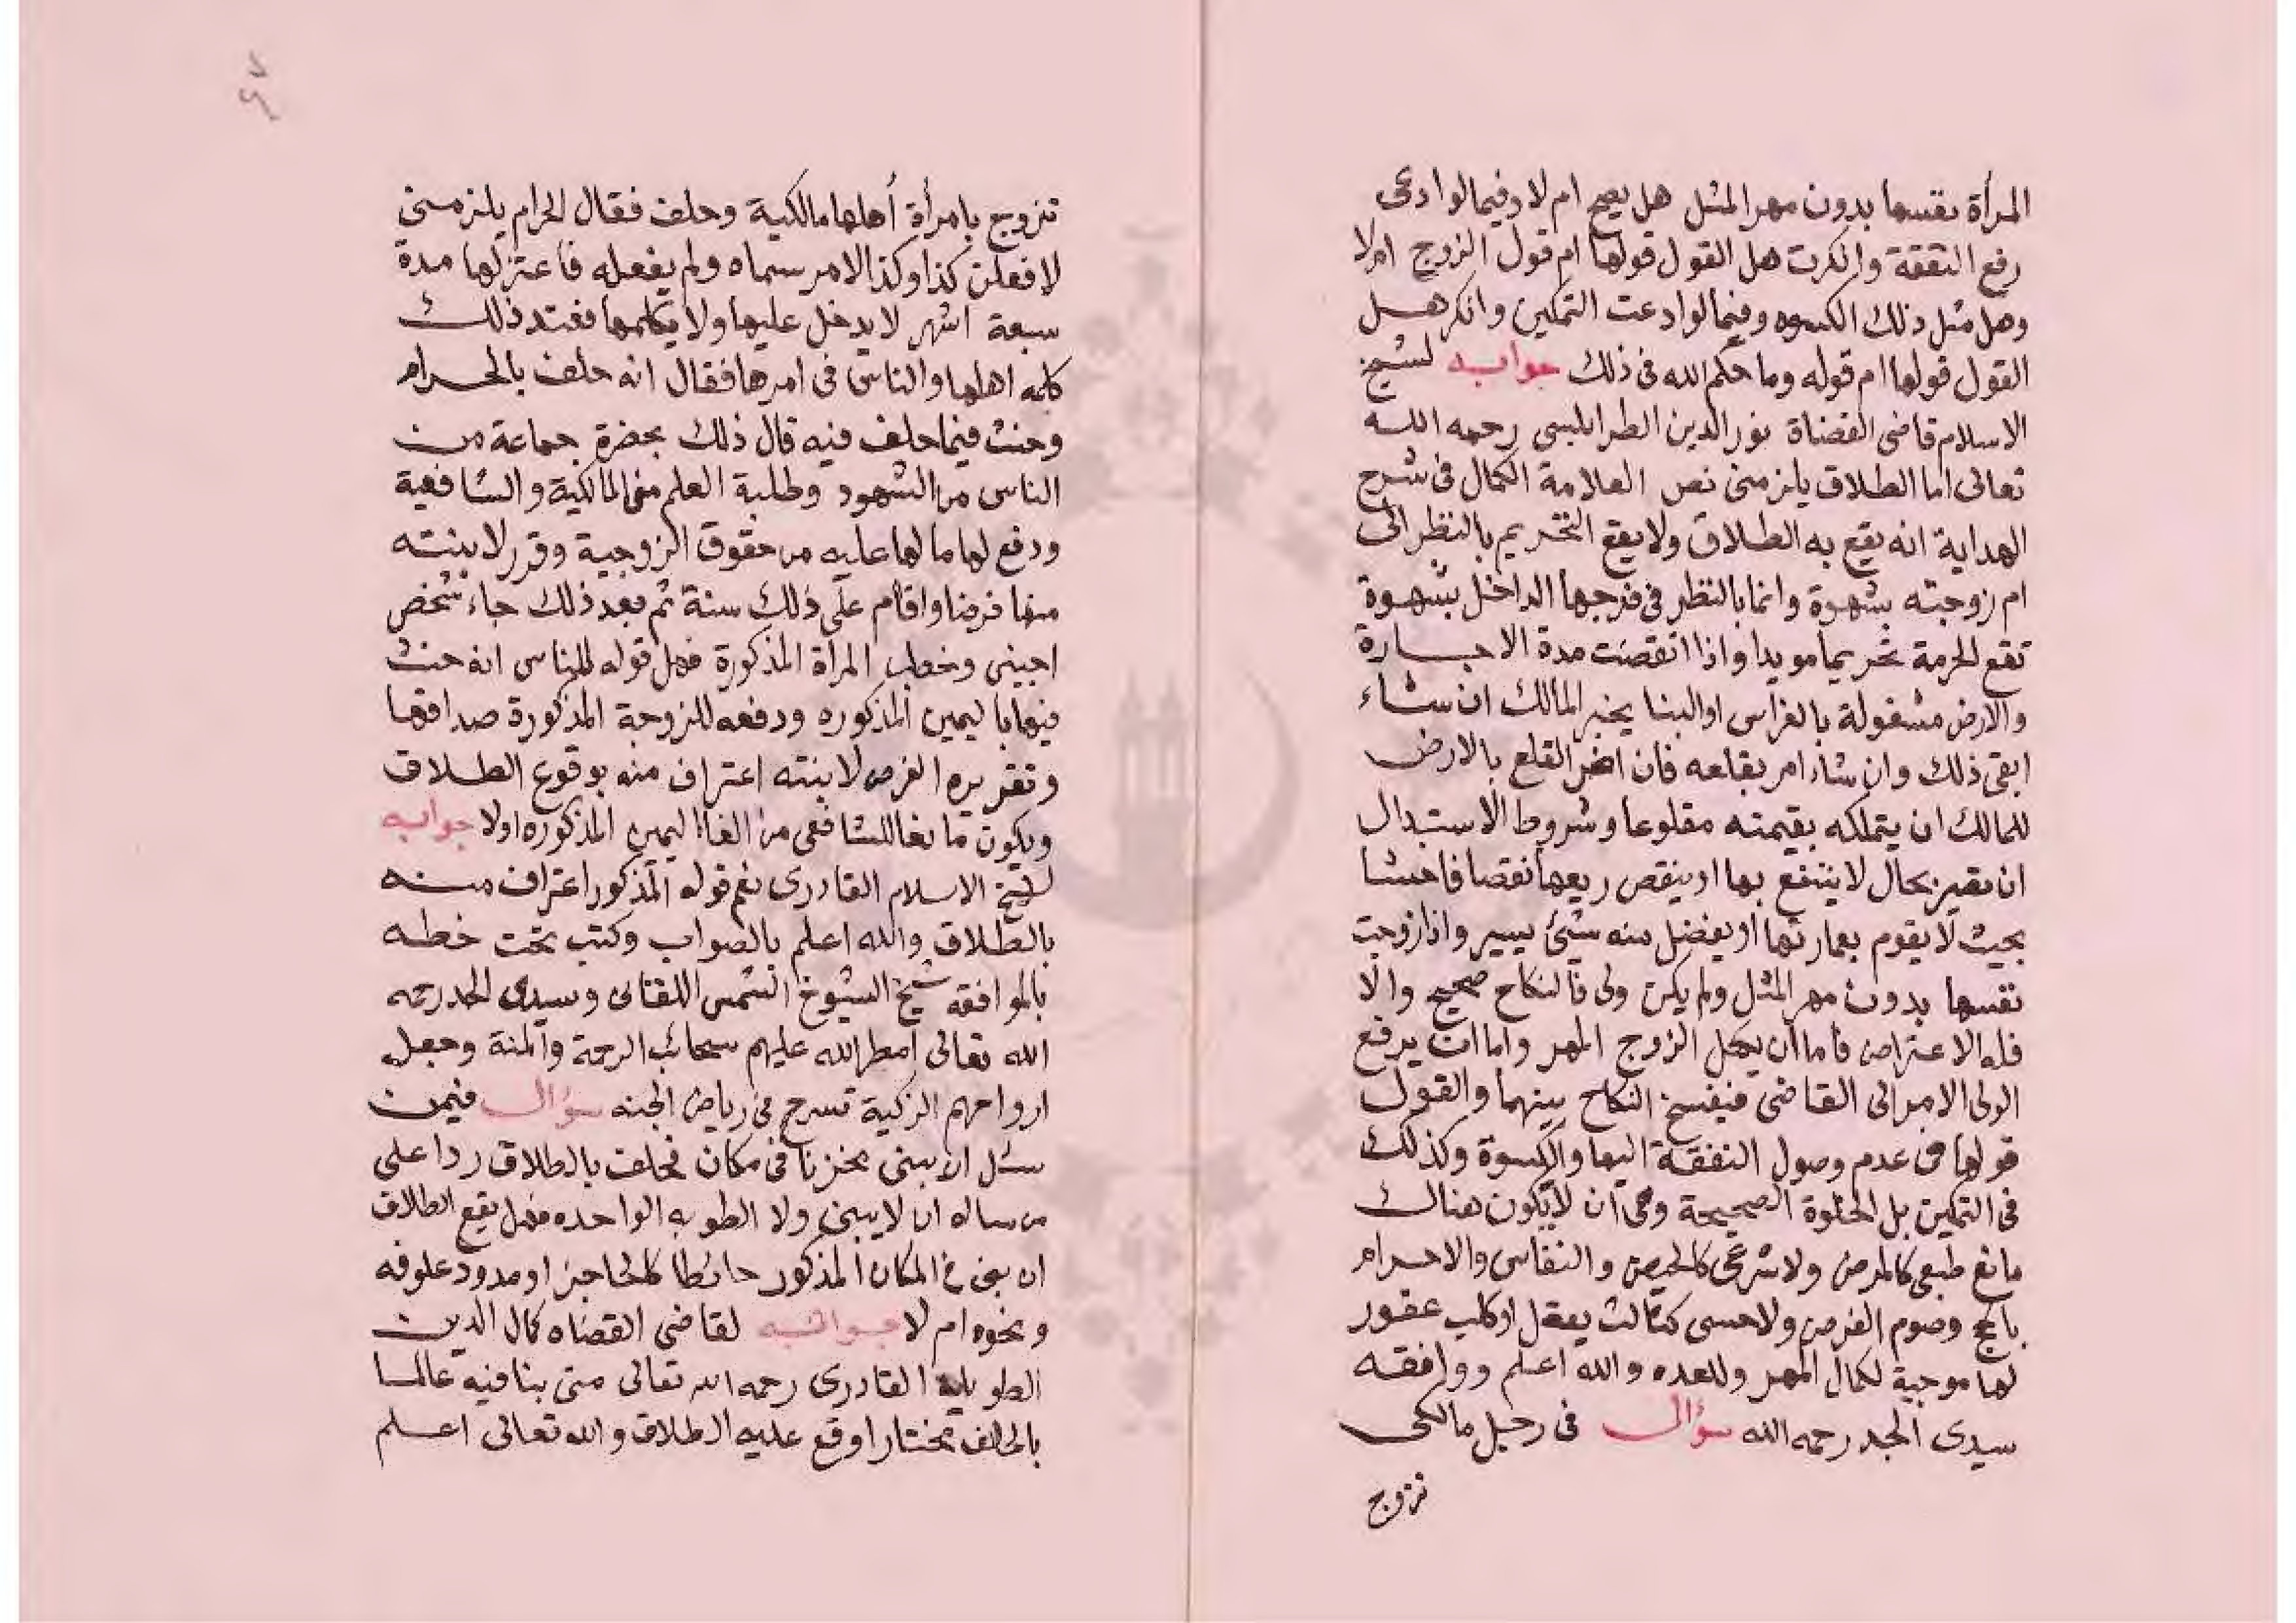 المرأة نفسها بدون مهر المثل هل يصح ام لا وفيما لو ادعى
رفع النفقة وانكرت هل القول قولها ام قول الزوج ام لا
وهل مثل ذلك الكسوه وفيما لو ادعت التمكين وانكر هــل
القول قولها ام قوله وما حكم الله فى ذلك جوابه لشيخ
الاسلام قاضى القضاة نور الدين الطرابلسى رحمه الله
تعالى اما الطلاق يلزمنى نص العلامة الكمال فى شرح
الهداية انه يقع به الطلاق ولا يقع التحريم بالنظر الى
ام زوجته بشهوة وانما بالنظر فى فرجها الداخل بشهوة
تقع الحرمة تحريما مويدا واذا انقضت مدة الاجــارة
والارض مشغولة بالغراس او البنا يخير المالك ان شاء
ابقى ذلك وان شاء امر بقلعه فان اضر القلع بالارض
للمالك ان يتملكه بقيمته مقلوعا وشروط الاستبدال
ان تصير بحال لا ينتفع بها او ينقص ريعها نقصا فاحشا
بحيث لا يقوم بعمارتها او يفضل منه شئ يسير واذا زوجت
نفسها بدون مهر المثل ولم يكن ولى فالنكاح صحيح والا
فله الاعتراض فاما ان يكمل الزوج المهر واما ان يرفع
الولى الامر الى القاضى فيفسخ النكاح بينهما والقول
قولها فى عدم وصول النفقة اليها والكسوة وكذلك
فى التمكين بل الخلوة الصحيحة وهى ان لا يكون هناك
مانع طبعى كالمرض ولا شرعى كالحيض والنفاس والاحرام
بالحج وصوم الفرض ولا حسى كثالث يعقل او كلب عقور
لها موجبة لكمال المهر وللعده والله اعلم ووافقه
سيدى الجد رحمه الله سؤال فى رجل مالكى
تزوج
تزوج بامرأة أهلها مالكية وحلف فقال الحرام يلزمنى
لافعلن كذا وكذا الامر سماه ولم يفعله فاعتزلها مدة
سبعة اشهر لا يدخل عليها ولا يكلمها فعند ذلك
كلمه اهلها والناس فى امرها فقال انه حلف بالحــرام
وحنث فيما حلف فيه قال ذلك بحضرة جماعة من
الناس من الشهود وطلبة العلم من المالكية والشافعية
ودفع لها ما لها عليه من حقوق الزوجية وقرر لابنته
منها فرضا واقام على ذلك سنة ثم بعد ذلك جاء شخص
اجنبى وخطب المرأة المذكورة فهل قوله للناس انه حنث
فيها باليمين المذكوره ودفعه للزوجة المذكورة صداقها
وتقريره الفرض لابنته اعتراف منه بوقوع الطــلاق
ويكون مانعا للشافعى من الغاا اليمين المذكوره اولا جوابه
لشيخ الاسلام القادرى نعم قوله المذكور اعتراف منه
بالطلاق والله اعلم بالصواب وكتب تحت خطه
بالموافقه شيخ الشيوخ الشمس اللقانى وسيدى الجد رحمه
الله تعالى امطر الله عليهم سحائب الرحمة والمنة وجعل
ارواحهم الزكية تسرح فى رياض الجنه سؤال فيمن
سئل ان يبنى مخزنا فى مكان فحلف بالطلاق ردا على
من ساله ان لا يبنى ولا الطوبه الواحده فهل يقع الطلاق
ان بنى فى المكان المذكور حائطا كالحاجز او مدود علوفه
ونحوه ام لا جوابه لقاضى القضاه كمال الدين
الطويل القادرى رحمه الله تعالى متى بنا فيه عالمــا
بالحلف مختارا وقع عليه الطلاق والله تعالى اعــلم